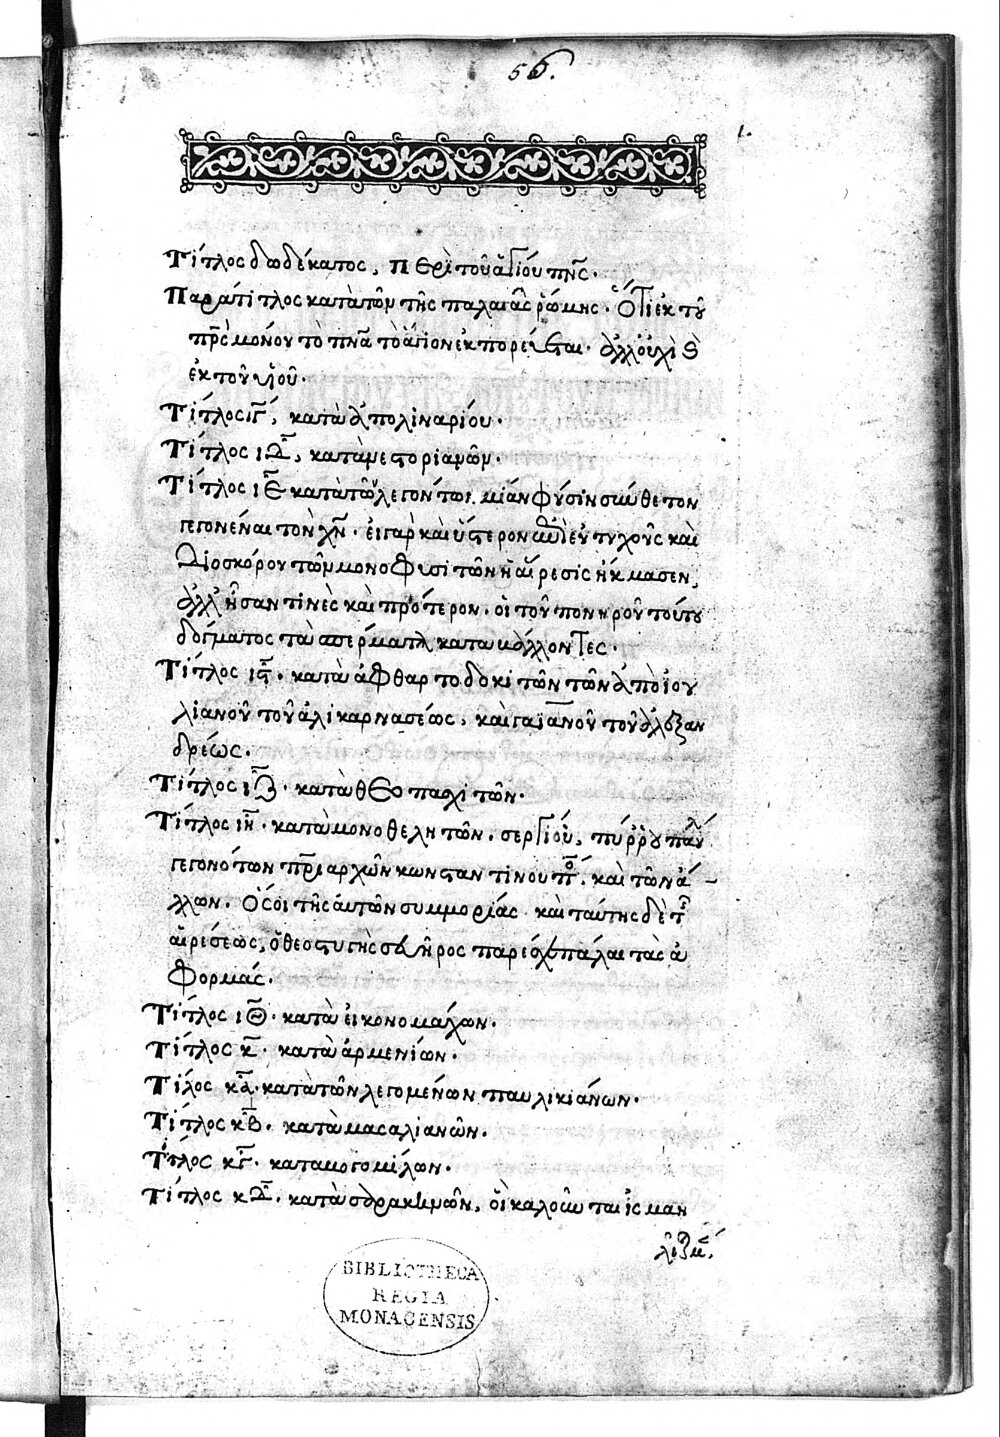 56.
1.
Τίτλος δωδέκατος, περὶ τοῦ ἁγίου πνς.
Παράτιτλος κατὰ τῶν τῆς παλαιᾶς ῥώμης. Ὅτι ἐκ τοῦ
πρς μόνου τὸ πνα τὸ ἅγιον ἐκπορεύεται. ἀλλ οὐχὶ καὶ
ἐκ τοῦ υἱοῦ.
Τίτλος ιγ, κατὰ ἀπολιναρίου.
Τίτλος ιδ, κατὰ νεστοριανῶν.
Τίτλος ιε κατὰ τῶν λεγόντων μίαν φύσιν σύνθετον
γεγονέναι τὸν χν. εἰ γὰρ καὶ ὕστερον εὐτυχοῦς καὶ
Διοσκόρου τῶν μονοφυσιτῶν ἡ αἵρεσις ἤκμασεν,
ἀλλ ἦσαν τινὲς καὶ πρότερον. οἱ τοῦ πονηροῦ τούτου
δόγματος τὰ σπέρματα καταβάλλοντες.
Τίτλος ις. κατὰ ἀφθαρτοδοκιτῶν τῶν ἀπὸ ἰου
λιανοῦ τοῦ ἁλικαρνασέως, καὶ γαϊανοῦ τοῦ ἀλεξαν
δρέως.
Τίτλος ιζ. κατὰ θεοπασχιτῶν.
Τίτλος ιη. κατὰ μονοθελητῶν. σεργίου, πύρρου παύλ
γεγονότων πριαρχῶν κωνσταντίνου π. καὶ τῶν ἄ
λλων. Ὅσοι τῆς αὐτῶν συμμορίας. καὶ ταύτης δὲ τ
αἱρέσεως, ὁ θεοστυγὴς σευῆρος παρέσχε πάλαι τὰς ἀ
φορμάς.
Τίτλος ιθ. κατὰ εἰκονομάχων.
Τίτλος κ. κατὰ ἀρμενίων.
Τίλος κα. κατὰ τῶν λεγομένων παυλικιάνων.
Τίτλος κβ. κατὰ μασαλιανῶν.
Τίτλος κγ. κατα μογομίλων.
Τίτλος κδ. κατὰ σαρακινῶν, οἳ καλοῦνται ἰσμαη
λῖται.
BIBLIOTHECA
REGIA
MONACENSIS